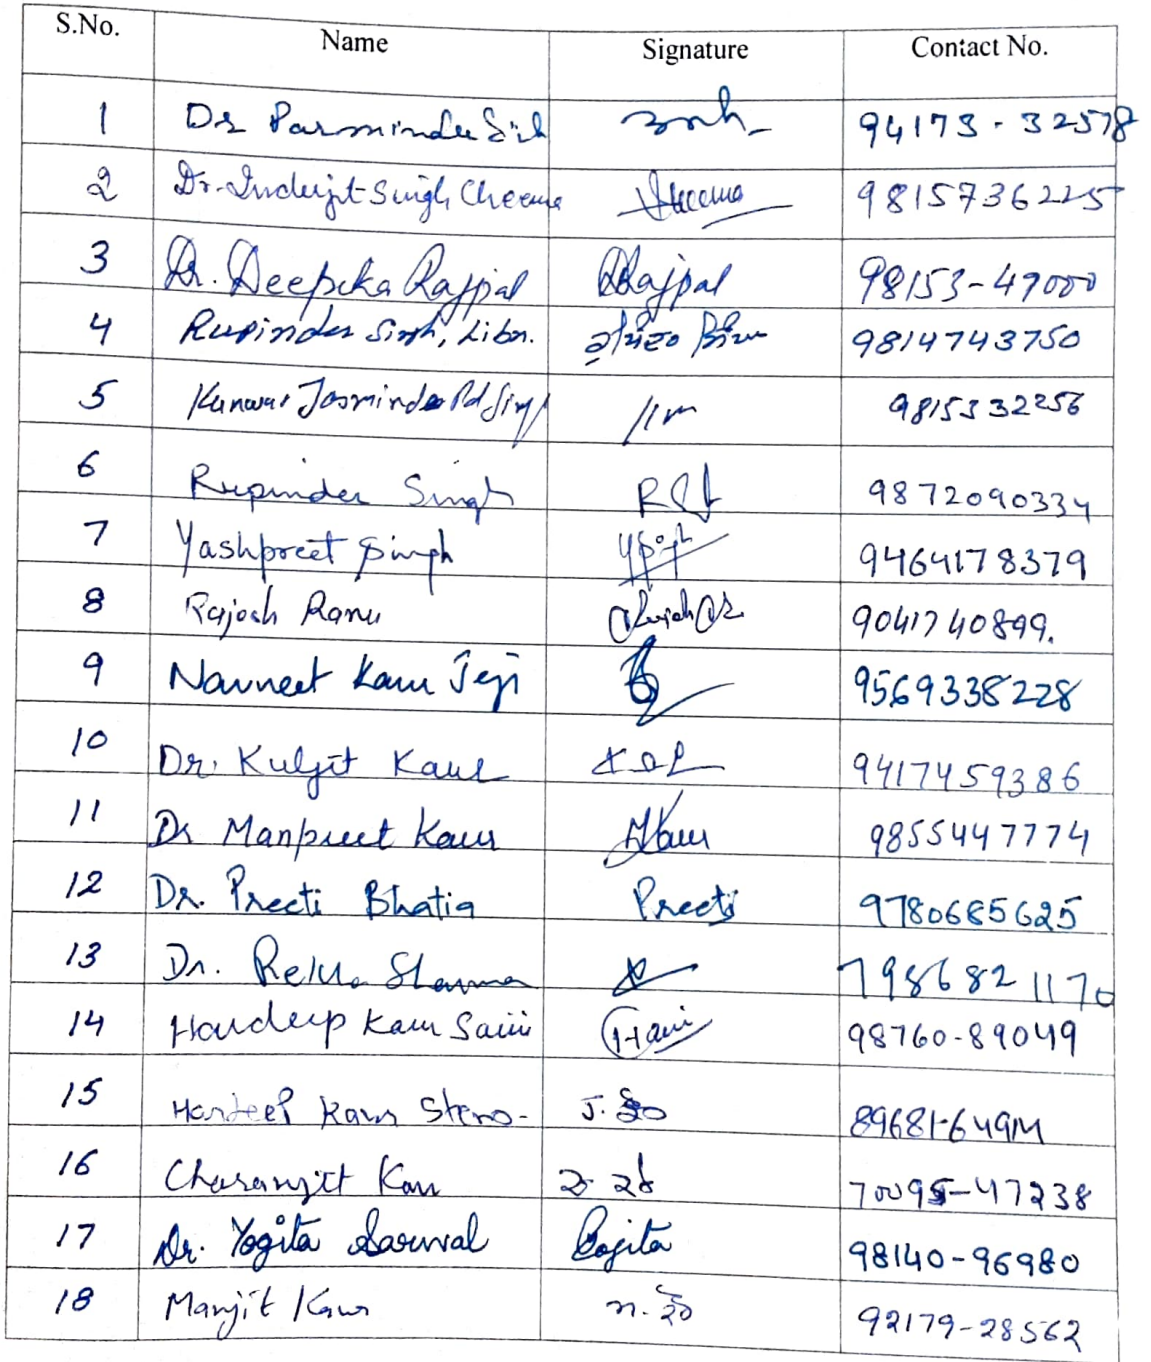 S.No. Name Signature Contact No.
1 Dr Parminder Singh 94173-32578
2 Dr. Inderjit Singh Cheema Cheema 9815736225
3 Dr. Deepika Rajpal DRajpal 98153-47000
4 Rupinder Singh, Libn. ਰੁਪਿੰਦਰ ਸਿੰਘ 9814743750
5 Kanwar Jasminder Pal Singh 9815332256
6 Rupinder Singh 9872090334
7 Yashpreet Singh 9464178379
8 Rajesh Ranu 9041740899.
9 Navneet Kaur Jeji 9569338228
10 Dr. Kuljit Kaur 9417459386
11 Dr Manpreet Kaur MKaur 9855447774
12 Dr. Preeti Bhatia Preeti 9780685625
13 Dr. Rekha Sharma 7986821170
14 Hardeep Kaur Saini Haini 98760-89049
15 Hardeep Kaur Steno-
16 Charanjit Kaur 70095-47238
17 Dr. Yogita Sarwal Yogita 98140-96980
18 Manjit Kaur ਮ. ਕੌਰ 92179-28562